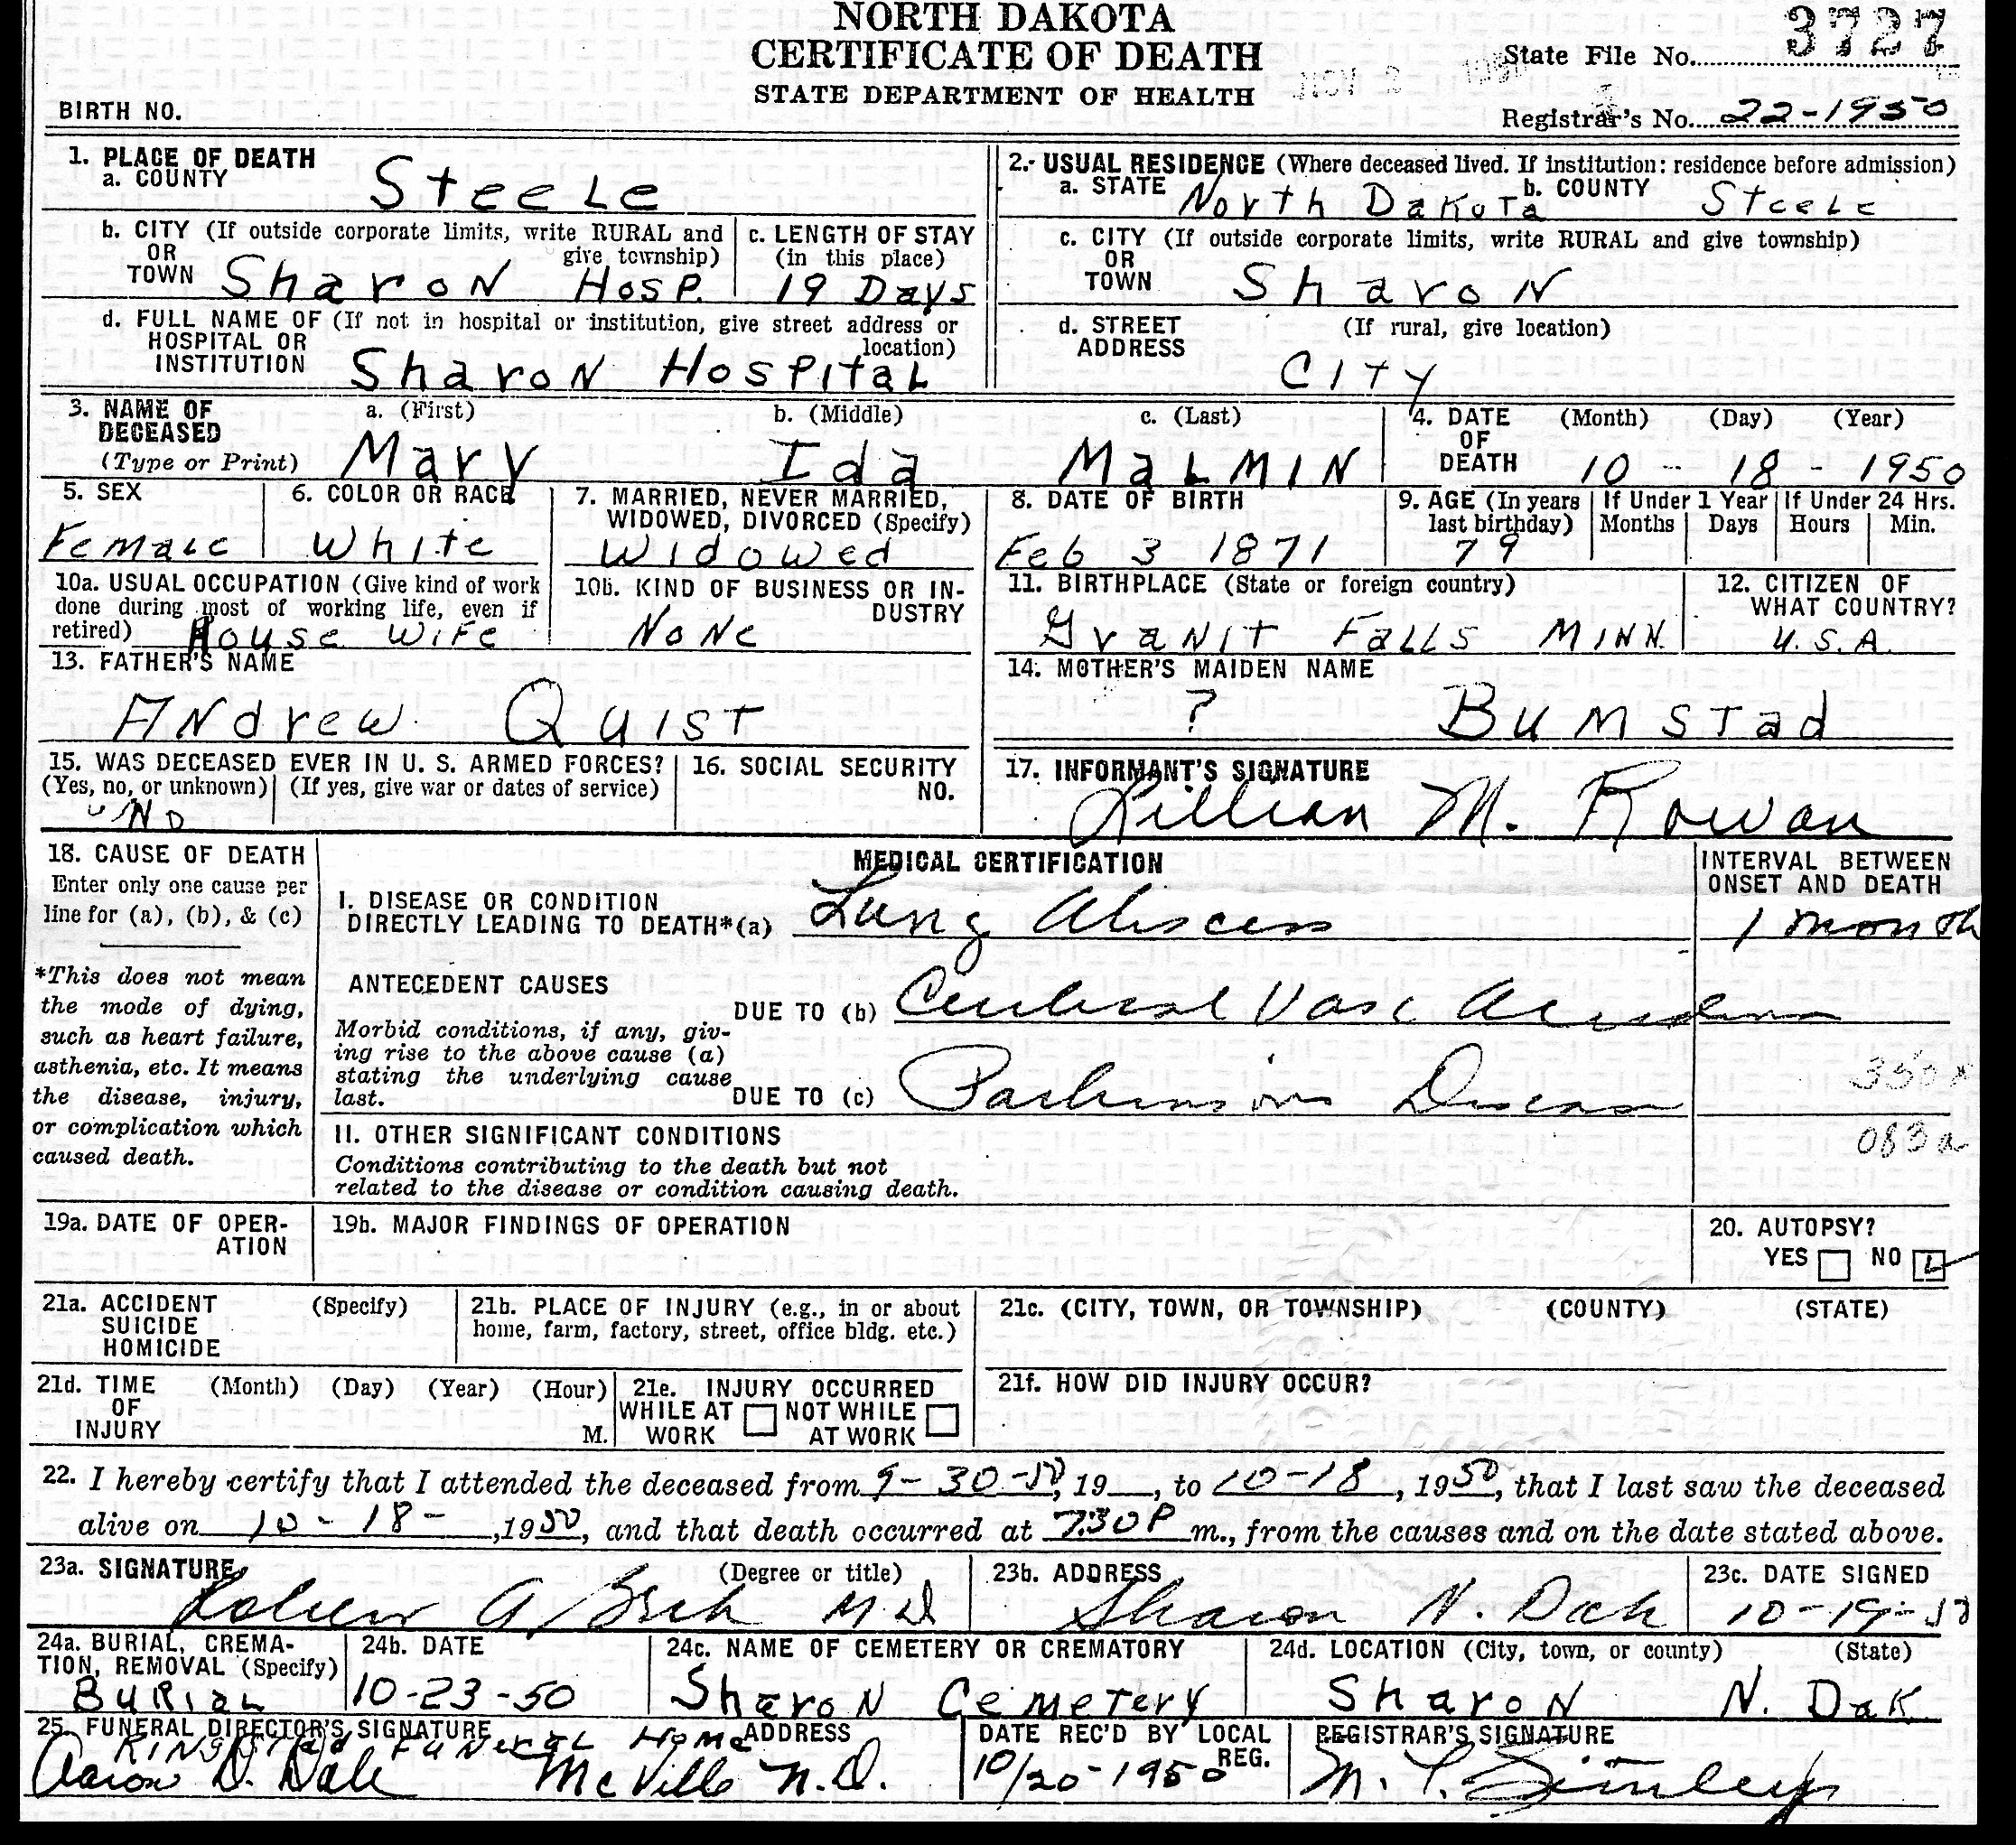 NORTH DAKOTA
CERTIFICATE OF DEATH
STATE DEPARTMENT OF HEALTH
State File No. 3727
BIRTH NO.
Registrar's No. 22-1950
1. PLACE OF DEATH
a. COUNTY Steele
2. USUAL RESIDENCE (Where deceased lived. If institution: residence before admission)
a. STATE North Dakota b. COUNTY Steele
b. CITY (If outside corporate limits, write RURAL and give township)
OR
TOWN Sharon Hosp.
c. LENGTH OF STAY
(in this place)
19 Days
c. CITY (If outside corporate limits, write RURAL and give township)
OR
TOWN Sharon
d. FULL NAME OF (If not in hospital or institution, give street address or location)
HOSPITAL OR
INSTITUTION Sharon Hospital
d. STREET (If rural, give location)
ADDRESS City
3. NAME OF DECEASED
(Type or Print)
a. (First) Mary
b. (Middle) Ida
c. (Last) Malmin
4. DATE OF DEATH (Month) (Day) (Year)
10 - 18 - 1950
5. SEX
Female
6. COLOR OR RACE
White
7. MARRIED, NEVER MARRIED,
WIDOWED, DIVORCED (Specify)
Widowed
8. DATE OF BIRTH
Feb 3 1871
9. AGE (In years last birthday)
79
If Under 1 Year
Months Days
If Under 24 Hrs.
Hours Min.
10a. USUAL OCCUPATION (Give kind of work
done during most of working life, even if
retired) House Wife
10b. KIND OF BUSINESS OR IN-
DUSTRY
None
11. BIRTHPLACE (State or foreign country)
Granit Falls Minn.
12. CITIZEN OF
WHAT COUNTRY?
U.S.A.
13. FATHER'S NAME
Andrew Quist
14. MOTHER'S MAIDEN NAME
? Bumstad
15. WAS DECEASED EVER IN U. S. ARMED FORCES?
(Yes, no, or unknown) (If yes, give war or dates of service)
No
16. SOCIAL SECURITY
NO.
17. INFORMANT'S SIGNATURE
Lillian M. Rowan
18. CAUSE OF DEATH
Enter only one cause per
line for (a), (b), & (c)
*This does not mean
the mode of dying,
such as heart failure,
asthenia, etc. It means
the disease, injury,
or complication which
caused death.
MEDICAL CERTIFICATION
INTERVAL BETWEEN
ONSET AND DEATH
I. DISEASE OR CONDITION
DIRECTLY LEADING TO DEATH*(a) Lung Abscess
1 month
ANTECEDENT CAUSES
DUE TO (b) Cerebral Vasc Accident
Morbid conditions, if any, giv-
ing rise to the above cause (a)
stating the underlying cause
last.
DUE TO (c) Parkinsons Disease
350x
II. OTHER SIGNIFICANT CONDITIONS
083a
Conditions contributing to the death but not
related to the disease or condition causing death.
19a. DATE OF OPER-
ATION
19b. MAJOR FINDINGS OF OPERATION
20. AUTOPSY?
YES NO
21a. ACCIDENT (Specify)
SUICIDE
HOMICIDE
21b. PLACE OF INJURY (e.g., in or about
home, farm, factory, street, office bldg. etc.)
21c. (CITY, TOWN, OR TOWNSHIP) (COUNTY) (STATE)
21d. TIME (Month) (Day) (Year) (Hour)
OF
INJURY M.
21e. INJURY OCCURRED
WHILE AT WORK NOT WHILE AT WORK
21f. HOW DID INJURY OCCUR?
22. I hereby certify that I attended the deceased from 9-30-50, 19__, to 10-18, 1950, that I last saw the deceased
alive on 10-18-, 1950, and that death occurred at 7:30P m., from the causes and on the date stated above.
23a. SIGNATURE (Degree or title)
M D
23b. ADDRESS
Sharon N. Dak
23c. DATE SIGNED
10-19-50
24a. BURIAL, CREMA-
TION, REMOVAL (Specify)
Burial
24b. DATE
10-23-50
24c. NAME OF CEMETERY OR CREMATORY
Sharon Cemetery
24d. LOCATION (City, town, or county) (State)
Sharon N. Dak
25. FUNERAL DIRECTOR'S SIGNATURE ADDRESS
Funeral Home
Aaron D. Dale McVille N.D.
DATE REC'D BY LOCAL
REG.
10/20-1950
REGISTRAR'S SIGNATURE
M. T.